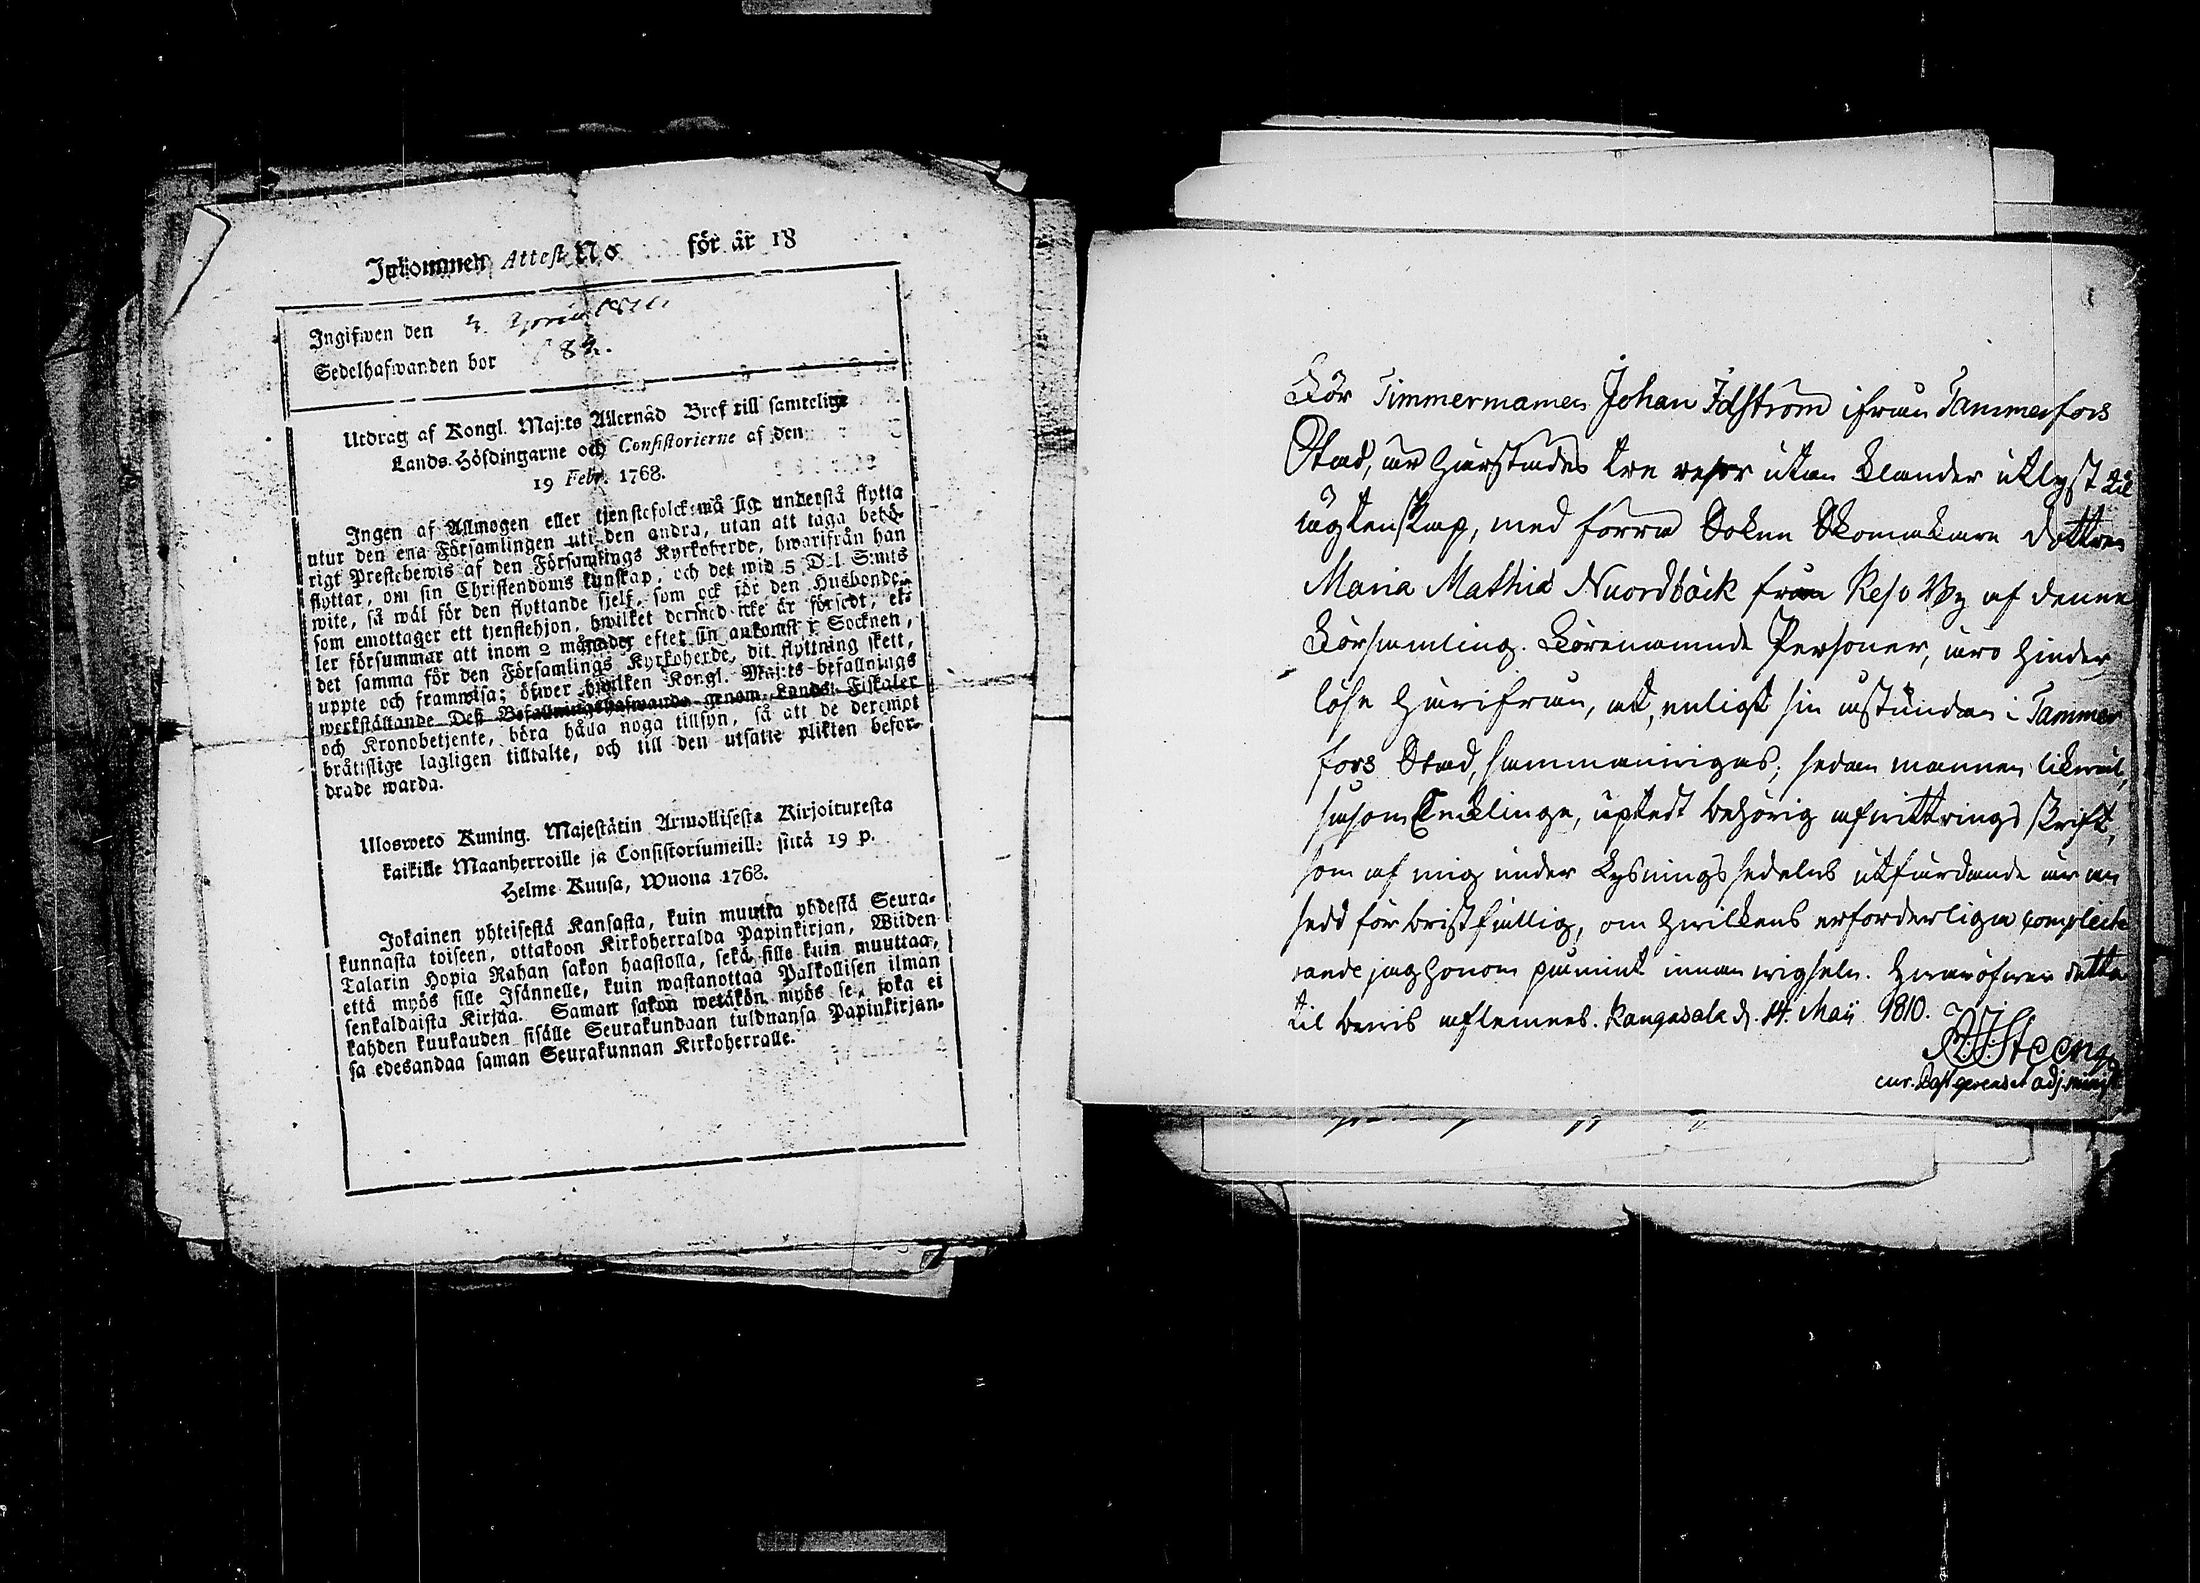 Inkommen Attest No för år 18
Ingifwen den 4. April 1811.
Sedelhafwanden bor 82.
Utdrag af Kongl. Maj:ts Allernåd Bref till samtelige
Lands-Höfdingarne och Consistorierne af den
19 Febr. 1768.
Ingen af Allmogen eller tjenstefolck må sig understå flytta
utur den ena Församlingen uti den andra, utan att taga behö-
rigt Prestebewis af den Församlings Kyrkoherde, hwarifrån han
flyttar, om sin Christendoms kunskap, och det wid 5 D:l S:mts
wite, så wäl för den flyttande sjelf, som ock för den Husbonde,
som emottager ett tjenstehjon, hwilket dermed icke är försedt, el-
ler försummar att inom 2 månader efter sin ankomst i Socknen,
det samma för den Församlings Kyrkoherde, dit flyttning skett,
uppte och framwisa; öfwer hwilken Kongl. Maj:ts befallnings
werkställande Dess Befallningshafwande genom Lands-Fiskaler
och Kronobetjente, böra hålla noga tillsyn, så att de deremot
bråttslige lagligen tilltalte, och till den utsatte plikten befor-
drade warda.
Uloswero Kuning. Majestätin Armollisesta Kirjoituresta
kaikille Maanherroille ja Consistoriumeille siitä 19 p.
Helme Kuusa, Wuona 1768.
Jokainen yhteisestä Kansasta, kuin muutta yhdestä Seura-
kunnasta toiseen, ottakoon Kirkoherralda Papinkirjan, Wiiden
Talarin Hopia Rahan sakon haastolla, sekä sille kuin muuttaa,
että myös sille Isännelle, kuin wastanottaa Palkollisen ilman
senkaldaista Kirjaa. Saman sakon wetäkön myös se, joka ei
kahden kuukauden sisälle Seurakundaan tulduansa Papinkirjan-
sa edesandaa saman Seurakunnan Kirkoherralle.
För Timmermannen Johan Idström ifrån Tammerfors
Stad, är härstädes tre resor utan klander utlyst til
ägtenskap, med förra Sokne Skomakare dottren
Maria Mathia Nuordbäck från Reso By af denna
Församling. Förenämnde Personer, äro hinder
löse härifrån, at, enligt sin åstundan i Tammer
fors Stad, sammanvigas; sedan mannen likväl,
såsom Enklinge, uptedt behörig afwittrings skrift,
som af mig under Lysnings sedelns utfärdande är an
sedd för bristfällig, om hwilkens erforderliga complette
rande jag honom påmint innan wigseln. Hwaröfwer detta
til bewis aflemnas. Kangasala d. 14. Maij 1810.
Steeng
cur. Past. gerens et adj. minist.